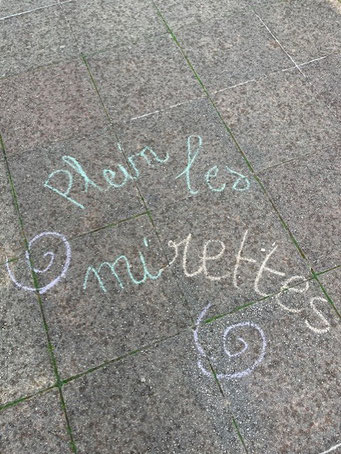 plein les
mirettes